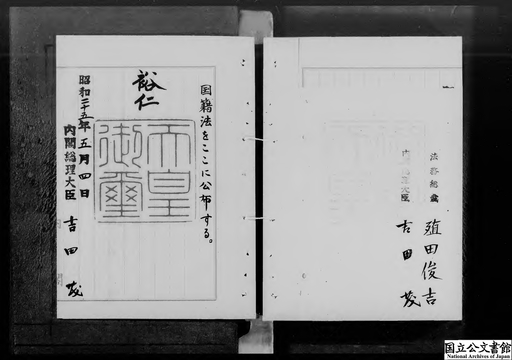 国籍法をここに公布する。
裕仁
天皇御璽
昭和二十五年五月四日
内閣総理大臣 吉田茂
法務総裁 殖田俊吉
内閣総理大臣 吉田茂
国立公文書館
National Archives of Japan